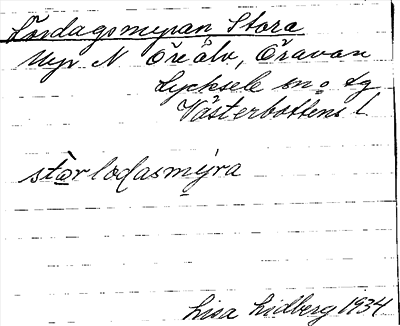 Lördagsmyran Stora
Myr N Öreälv, Öravan
Lycksele sn o tg
Västerbottens l
storlodasmýra
Lisa Lidberg 1934